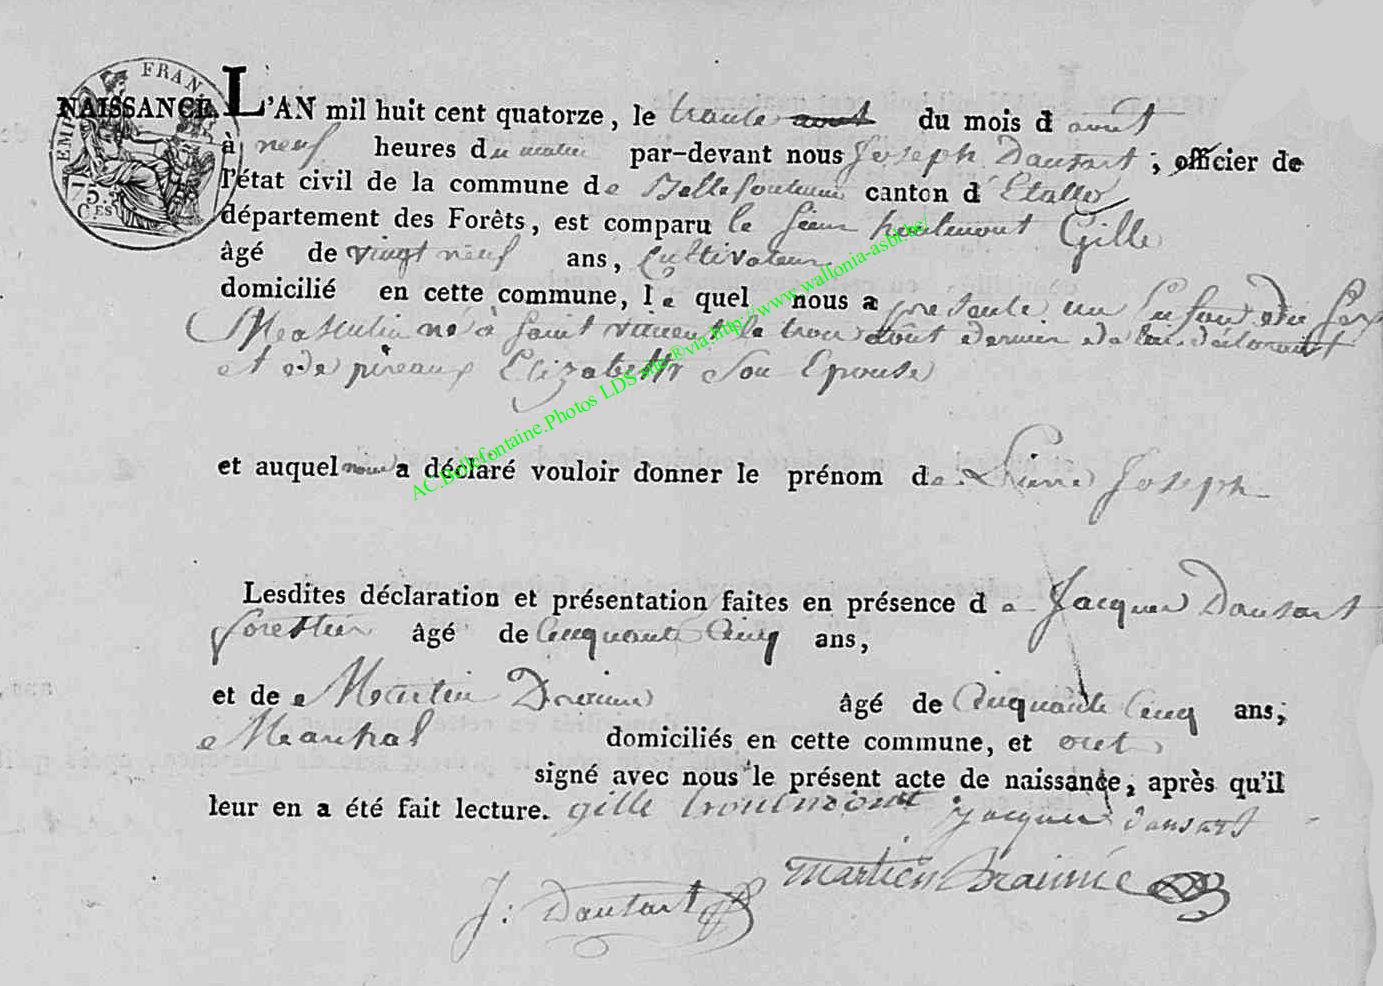 FRAN
EMPI
75.
CES
NAISSANCE. L'AN mil huit cent quatorze, le trante aout du mois d août
à neuf heures du matin par-devant nous Joseph Dausart ; officier de
l'état civil de la commune de Bellefontaine canton d'Etalle
département des Forêts, est comparu le sieur Gille
âgé de vingt neuf ans, Cultivateur
domicilié en cette commune, le quel nous a presante un Enfan du sex
Masculin né à saint vincent le trois août dernier de lui declarant
et de pireaux Elizabeth son Epouse
et auquel nous a déclaré vouloir donner le prénom de Pierre Joseph
Lesdites déclaration et présentation faites en présence d e Jacques Dausart
forestier âgé de Cinquante Cinq ans,
et de Martin âgé de Cinquante Cinq ans;
Marchal domiciliés en cette commune, et ont
signé avec nous le présent acte de naissance, après qu'il
leur en a été fait lecture. gille jacques dausart
martien Braimie
J: Dausart
AC.Bellefontaine.Photos LDS via http://www.wallonia-asbl.be/